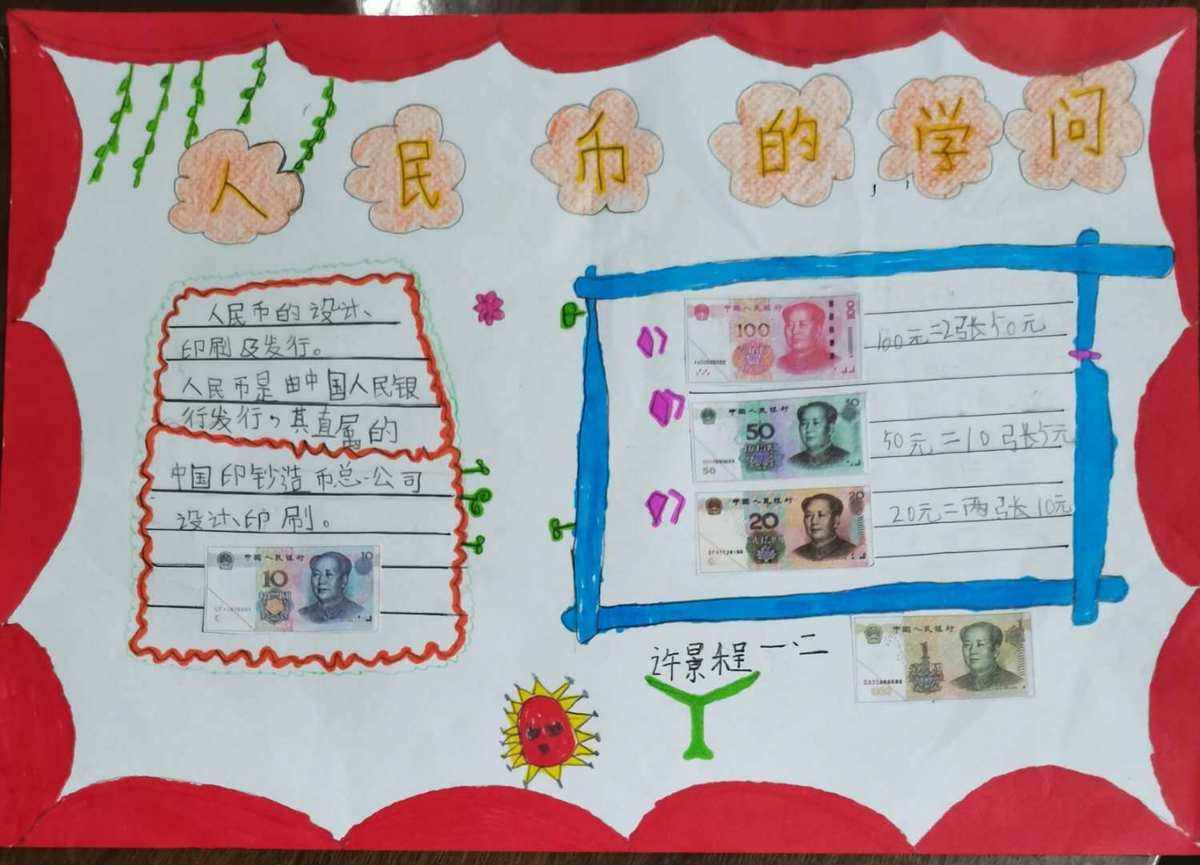 人民币的学问
人民币的设计、
印刷及发行。
人民币是由中国人民银
行发行，其直属的
中国印钞造币总公司
设计、印刷。
中国人民银行 10
10
中国人民银行 100
100
100元=2张50元
中国人民银行 50
50
50
50元=10张5元
中国人民银行 20
20
20元=两张10元
许景程 一、二
中国人民银行 1
1